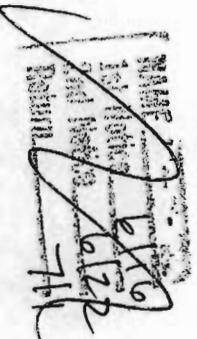 NAME
1st Notice 6/16
2nd Notice 6/22
Return 7/1